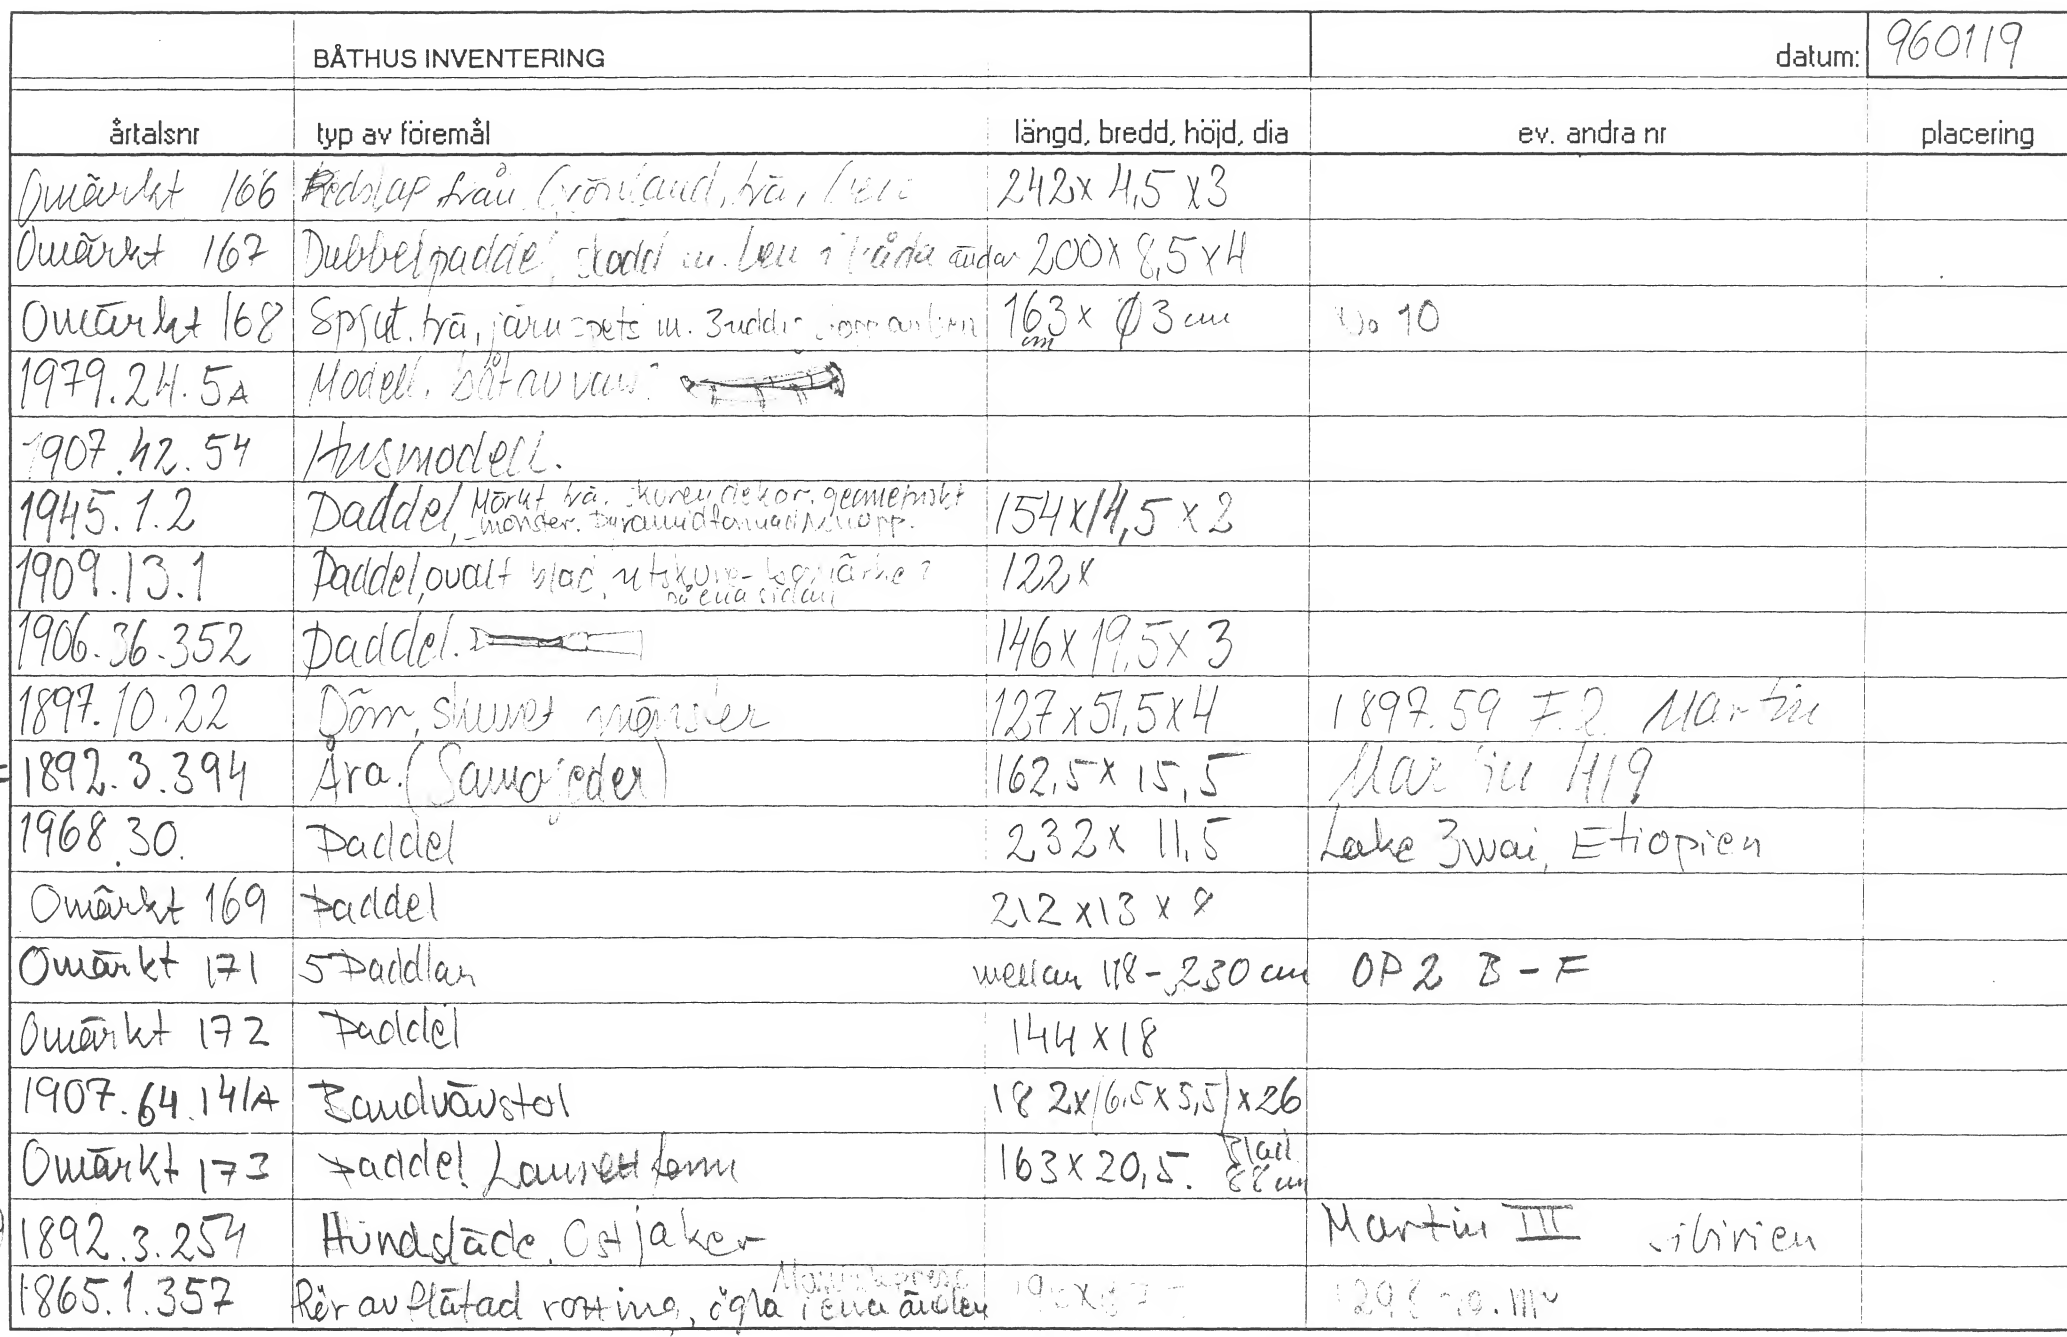 BÅTHUS INVENTERING datum: 960119
årtalsnr typ av föremål längd, bredd, höjd, dia ev. andra nr placering
Omärkt 166 Redskap från Grönland, trä, ben 242 x 4,5 x 3
Omärkt 167 Dubbelpaddel, skodd m. ben i båda ändar 200 x 8,5 x 4
Omärkt 168 Spjut. trä, järnspets m. 163 cm x Ø 3 cm No 10
1979.24.5A Modell. båt av
1907.42.54 Husmodell.
1945.1.2 Paddel, Mörkt trä. skuren dekor. geometriskt
mönster. Pyramidformad knopp. 154 x 14,5 x 2
1909.13.1 Paddel, ovalt blad, 122 x
på ena sidan
1906.36.352 Paddel. 146 x 19,5 x 3
1897.10.22 Dörr, skuret mönster 127 x 51,5 x 4 1897.59 F.R. Martin
1892.3.394 Åra. (Samojeder) 162,5 x 15,5 Martin 419
1968.30. Paddel 232 x 11,5 Lake Zwai, Etiopien
Omärkt 169 Paddel 212 x 13 x 8
Omärkt 171 5 Paddlar mellan 118 - 230 cm OP2 B - F
Omärkt 172 Paddel 144 x 18
1907.64.141A Bandvävstol 182 x (6,5 x 5,5) x 26
Omärkt 173 Paddel Lansettform 163 x 20,5. Blad
88 cm
1892.3.254 Hundsläde. Ostjaker Martin III sibirien
1865.1.357 Rör av flätad rotting, ögla i ena änden